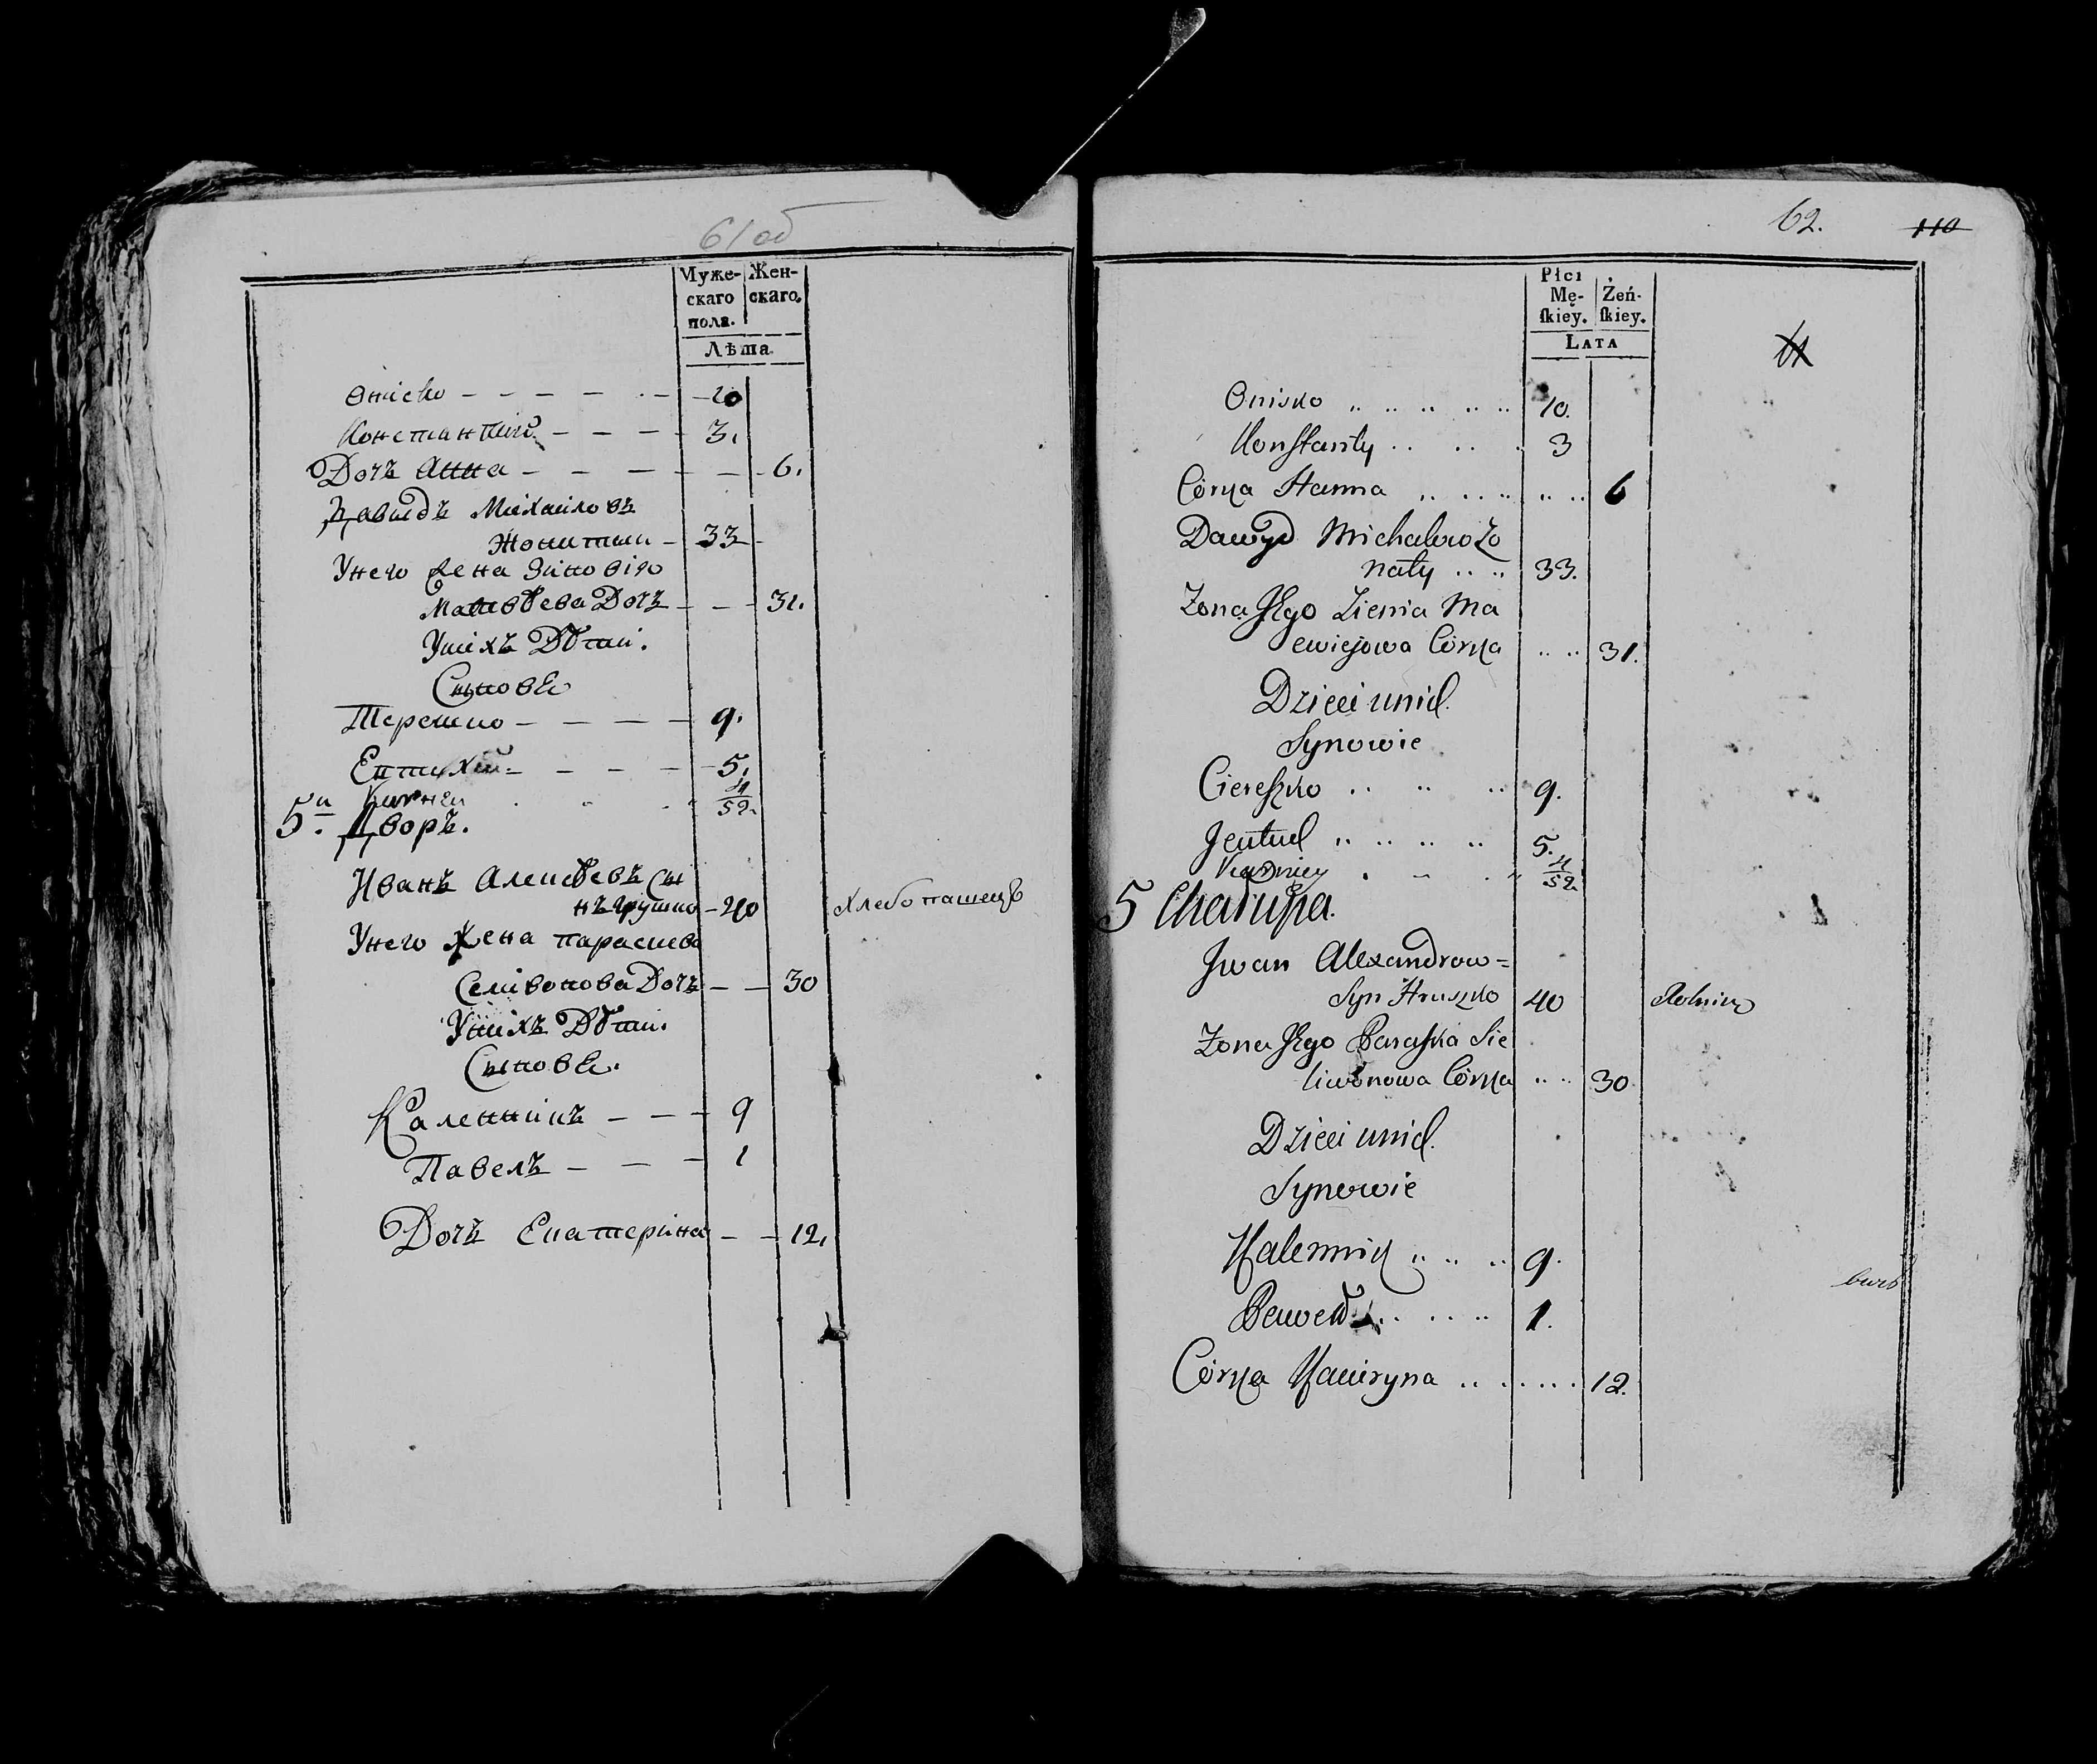 61 об
Муже- Жен-
скаго скаго.
пола.
Лѣта
Ониско — — — — — 10
Константий — — — 3.
Дочь Анна — — — — — 6.
Давидъ Михайловъ
Жонатый — 33
Унего жена Зиновія
Матвѣева Дочь — — 31.
Унихъ Дѣти.
Сыновя
Терешко — — — — 9.
Евтихій — — — — 5.
4/52.
5й Дворъ.
Иванъ Алексѣевъ сы
нъ Грушко — 40 Хлебопашецъ
Унего жена параскева
Селивонова Дочь — — 30
Унихъ Дѣти.
Сыновя.
Каленникъ — — — 9
Павелъ — — — 1
Дочь Екатерина — — 12.
62. 110
Płci
Mę- Żeń-
ſkiey. ſkiey.
LATA
61
Onisko .. .. .. .. .. 10.
Konſtanty .. .. .. 3
Córka Hanna .. .. .. .. .. 6
Dawyd Michałow Żo
naty .. .. 33.
Żona Jego Zienia Ma
ewiejowa Córka .. .. 31.
Dzieci unich.
Synowie
Ciereſzko .. .. .. 9.
Jeutuch .. .. .. .. 5.
4/52.
5 Chałupa.
Jwan Alexandrow=
Syn Hruszko 40 Rolnik
Żona Jego Paraſka Sie
liwonowa Córka .. .. 30
Dzieci unich.
Synowie
Kalennik .. .. .. 9.
Paweł .. .. .. 1.
Córka Kaciryna .. .. .. 12.